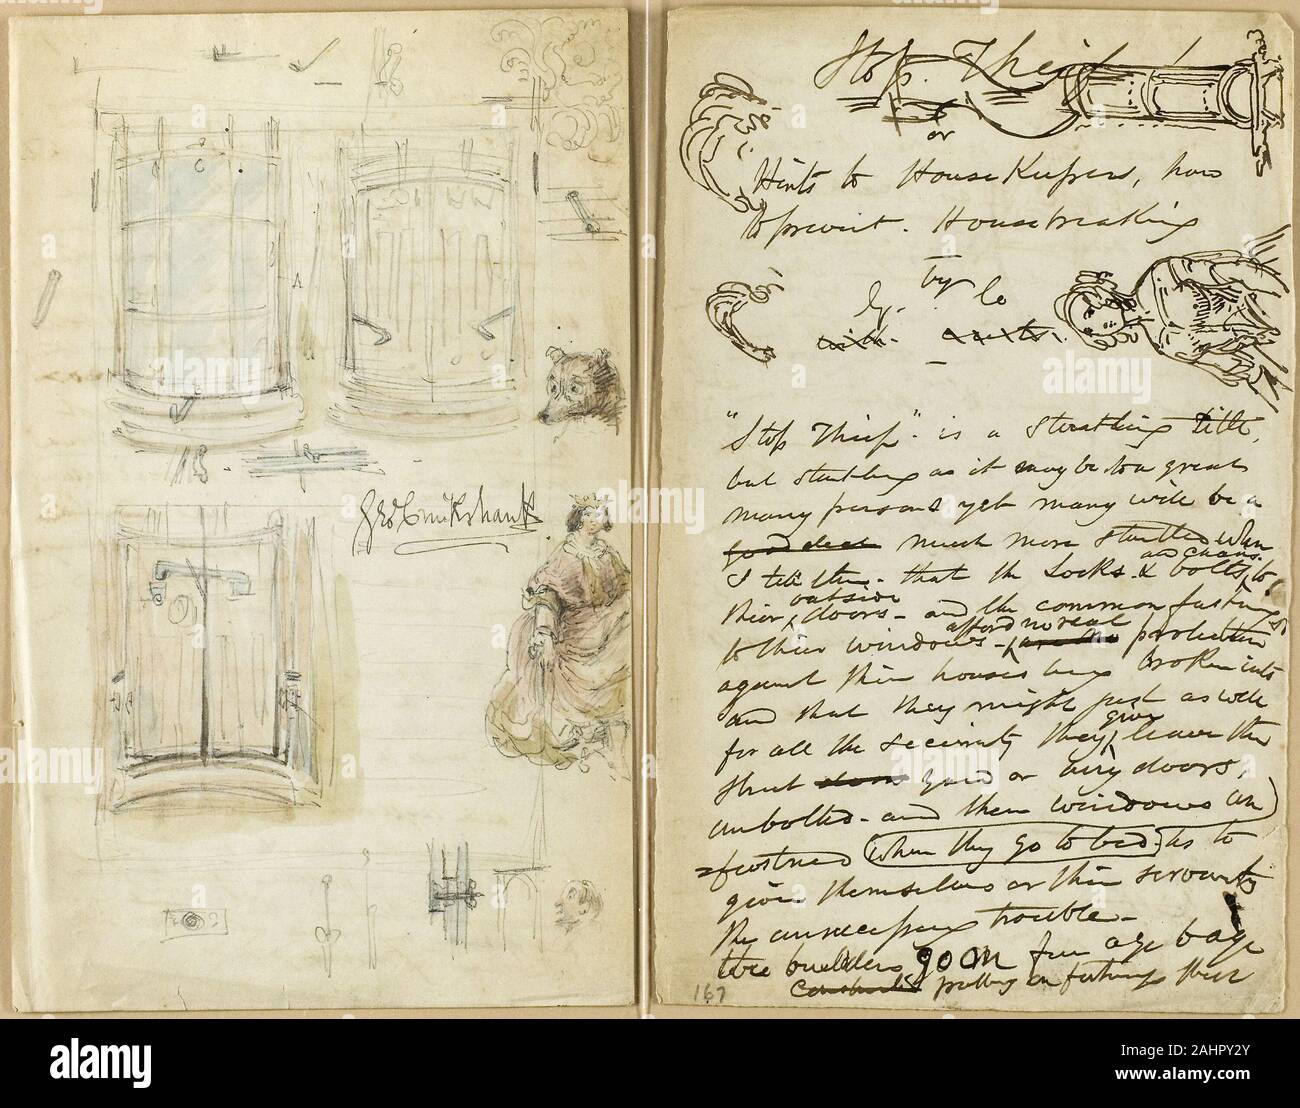 Geo Cruikshank
A
Stop. Thief!
or
Hints to HouseKeepers, how
to prevent. Housebreaking
by
"Stop Thief" - is a Startling title,
but startling as it may be to a great
many persons yet many will be a
much more startled when
I tell them - that the Locks & bolts and chains to
their outside doors - and the common fastenings
to their windows - afford no real protection
against their houses being broken into
and that they might just as well
for all the security they give, leave the
street yard or area doors,
unbolted - and their windows un
=fastened when they go to bed - as to
give themselves or their servants
the unnecessary trouble -
The builders go on from age to age
putting on fastenings
167
alamy
Image ID: 2AHPY2Y
www.alamy.com